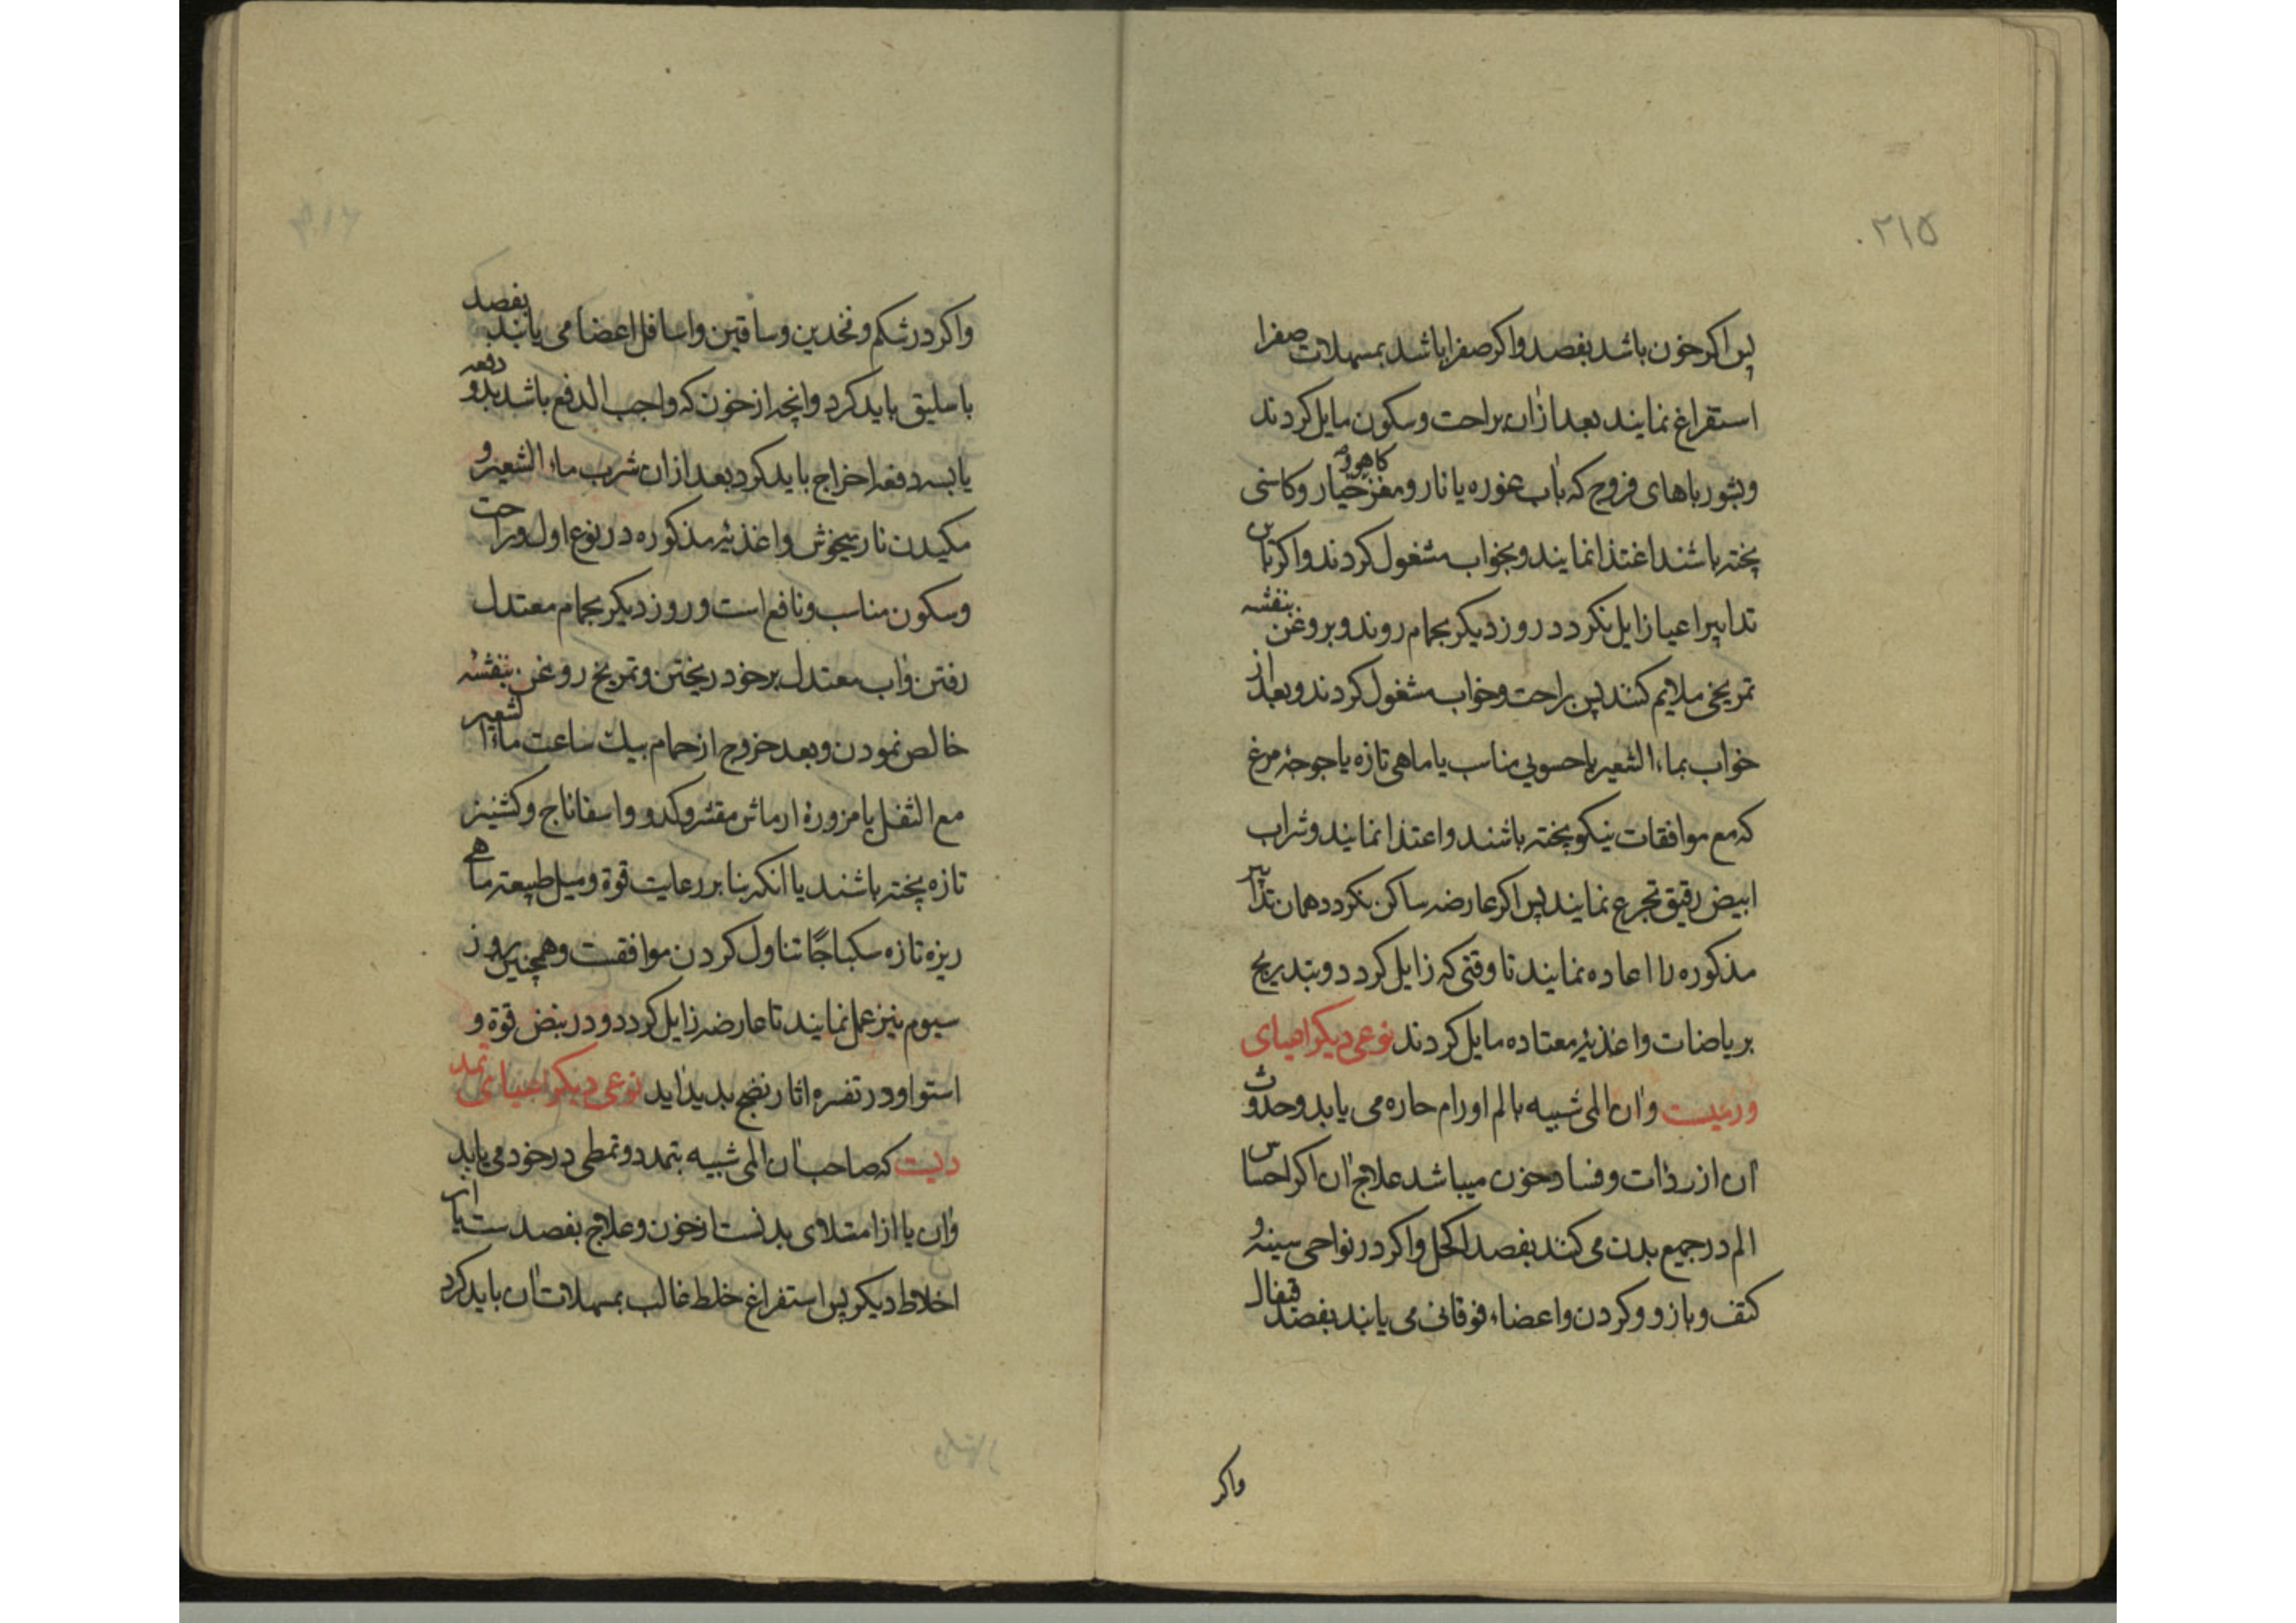 ۲۱۵
پس اکر خون باشد بفصد واکر صفرا باشد بمسهلات صفرا
استفراغ نمایند بعد ازان براحت وسکون مایل کردند
وبشورباهای فروج که باب غوره یا نار ومغز خیار وکاهو وکاسنی
پخته باشند اغتذا نمایند وبخواب مشغول کردند واکر باین
تدابیر اعیا زایل نکردد روز دیکر بحمام روند وبروغن بنفشه
تمریخی ملایم کنند پس براحت وخواب مشغول کردند وبعد از
خواب بماء الشعیر یا حسویی مناسب یا ماهی تازه یا جوجه مرغ
که مع موافقات نیکو پخته باشند واغتذا نمایند وشراب
ابیض رقیق تجرع نمایند پس اکر عارضه ساکن نکردد همان تدابیر
مذکوره را اعاده نمایند تا وقتی که زایل کردد وبتدریج
بریاضات واغذیۀ معتاده مایل کردند نوعی دیکر اعیای
ورمیست وان المی شبیه بالم اورام حاره می یابد وحدوث
ان از ردات وفساد خون میباشد علاج ان اکر احساس
الم در جمیع بدن می کنند بفصد اکحل واکر در نواحی سینه و
کتف وبازو وکردن واعضاء فوقانی می یابند بفصد قیفال
واکر
واکر در شکم وفخذین وساقین واسافل اعضا می یابند بفصد
باسلیق باید کرد وانچه از خون که واجب الدفع باشد بدو دفعه
یا بسه دفعه اخراج باید کرد بعد ازان شرب ماء الشعیر و
مکیدن نار میخوش واغذیۀ مذکوره در نوع اول وراحت
وسکون مناسب ونافع است وروز دیکر بحمام معتدل
رفتن واب معتدل بر خود ریختن وتمریخ روغن بنفشه
خالص نمودن وبعد خروج از حمام بیک ساعت ماء الشعیر
مع الثفل یا مزورۀ از ماش مقشر وکدو واسفاناج وکشنیز
تازه پخته باشند یا انکه بنا بر رعایت قوة ومیل طبیعة ماهی
ریزه تازه سکباجًا تناول کردن موافقست وهمچنین روز
سیوم نیز عمل نمایند تا عارضه زایل کردد ودر نبض قوة و
استوا ودر تفسره اثار نضج بدید اید نوعی دیکر اعیای تمد
دیست که صاحب ان المی شبیه بتمدد وتمطی در خود می یابد
وان یا از امتلای بدنست از خون وعلاج بفصد ست یا از
اخلاط دیکر پس استفراغ خلط غالب بمسهلات ان باید کرد